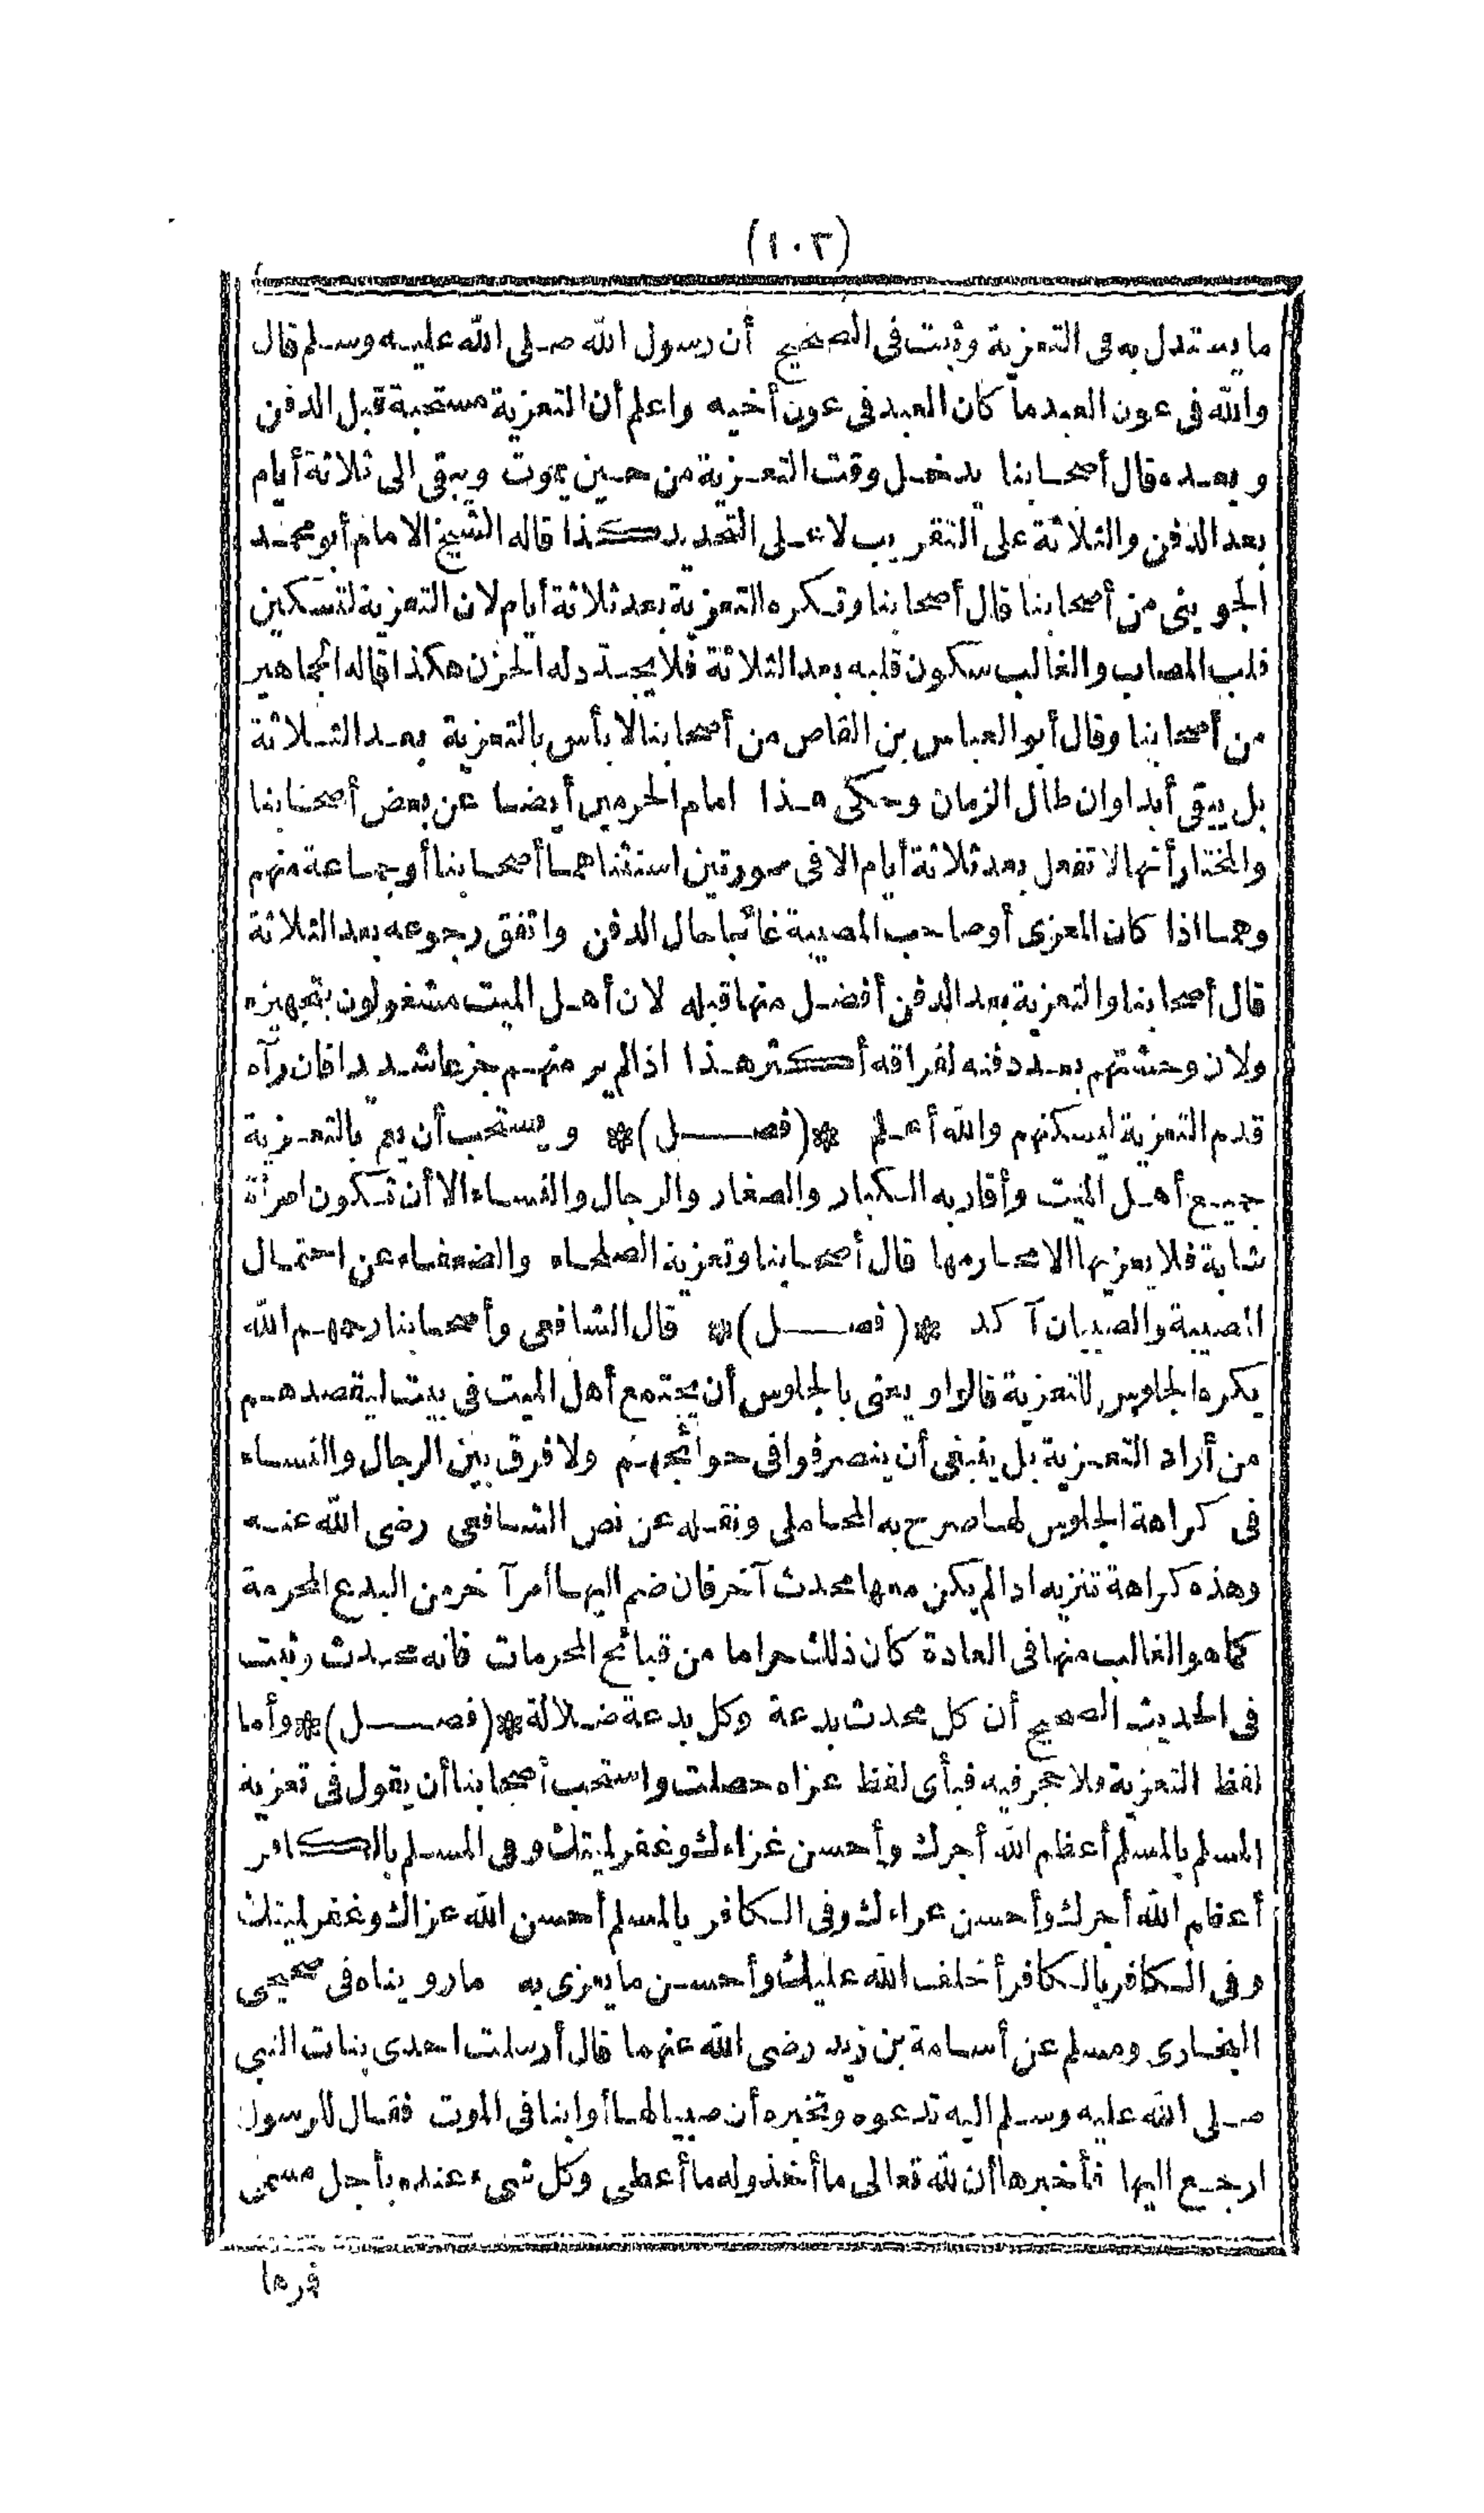 (١٠٣)
ما يستدل به في التعزية وثبت في الصحيح أن رسول الله صلى الله عليه وسلم قال
والله في عون العبد ما كان العبد في عون أخيه واعلم أن التعزية مستحبة قبل الدفن
وبعده قال أصحابنا يدخل وقت التعزية من حين يموت ويبقى الى ثلاثة أيام
بعد الدفن والثلاثة على التقريب لا على التحديد كذا قاله الشيخ الامام أبو محمد
الجويني من أصحابنا قال أصحابنا وتكره التعزية بعد ثلاثة أيام لان التعزية لتسكين
قلب المصاب والغالب سكون قلبه بعد الثلاثة فلا يجدد له الحزن هكذا قاله الجماهير
من أصحابنا وقال أبو العباس بن القاص من أصحابنا لا بأس بالتعزية بعد الثلاثة
بل يبقى أبدا وان طال الزمان وحكى هذا امام الحرمين أيضا عن بعض أصحابنا
والمختار أنها لا تفعل بعد ثلاثة أيام الا في صورتين استثناهما أصحابنا أو جماعة منهم
وهما اذا كان المعزى أو صاحب المصيبة غائبا حال الدفن واتفق رجوعه بعد الثلاثة
قال أصحابنا والتعزية بعد الدفن أفضل منها قبله لان أهل الميت مشغولون بتجهيزه
ولان وحشتهم بعد دفنه لفراقه أكثر هذا اذا لم ير منهم جزعا شديدا فان رآه
قدم التعزية ليسكنهم والله أعلم *(فصل)* ويستحب أن يعم بالتعزية
جميع أهل الميت وأقاربه الكبار والصغار والرجال والنساء الا أن تكون امرأة
شابة فلا يعزيها الا محارمها قال أصحابنا وتعزية الصلحاء والضعفاء عن احتمال
المصيبة والصبيان آكد *(فصل)* قال الشافعي وأصحابنا رحمهم الله
يكره الجلوس للتعزية قالوا ويعنى بالجلوس أن يجتمع أهل الميت في بيت ليقصدهم
من أراد التعزية بل ينبغي أن ينصرفوا في حوائجهم ولا فرق بين الرجال والنساء
في كراهة الجلوس لها صرح به المحاملي ونقله عن نص الشافعي رضى الله عنه
وهذه كراهة تنزيه اذا لم يكن معها محدث آخر فان ضم اليها أمر آخر من البدع المحرمة
كما هو الغالب منها في العادة كان ذلك حراما من قبائح المحرمات فانه محدث وثبت
في الحديث الصحيح أن كل محدث بدعة وكل بدعة ضلالة *(فصل)* وأما
لفظ التعزية فلا حجر فيه فبأى لفظ عزاه حصلت واستحب أصحابنا أن يقول في تعزية
المسلم بالمسلم أعظم الله أجرك وأحسن عزاءك وغفر لميتك وفي المسلم بالكافر
أعظم الله أجرك وأحسن عزاءك وفي الكافر بالمسلم أحسن الله عزاك وغفر لميتك
وفي الكافر بالكافر أخلف الله عليك وأحسن ما يعزى به ما رويناه في صحيحى
البخارى ومسلم عن أسامة بن زيد رضى الله عنهما قال أرسلت احدى بنات النبي
صلى الله عليه وسلم اليه تدعوه وتخبره أن صبيا لها أو ابنا في الموت فقال للرسول
ارجع اليها فأخبرها أن لله تعالى ما أخذ وله ما أعطى وكل شيء عنده بأجل مسمى
فرها